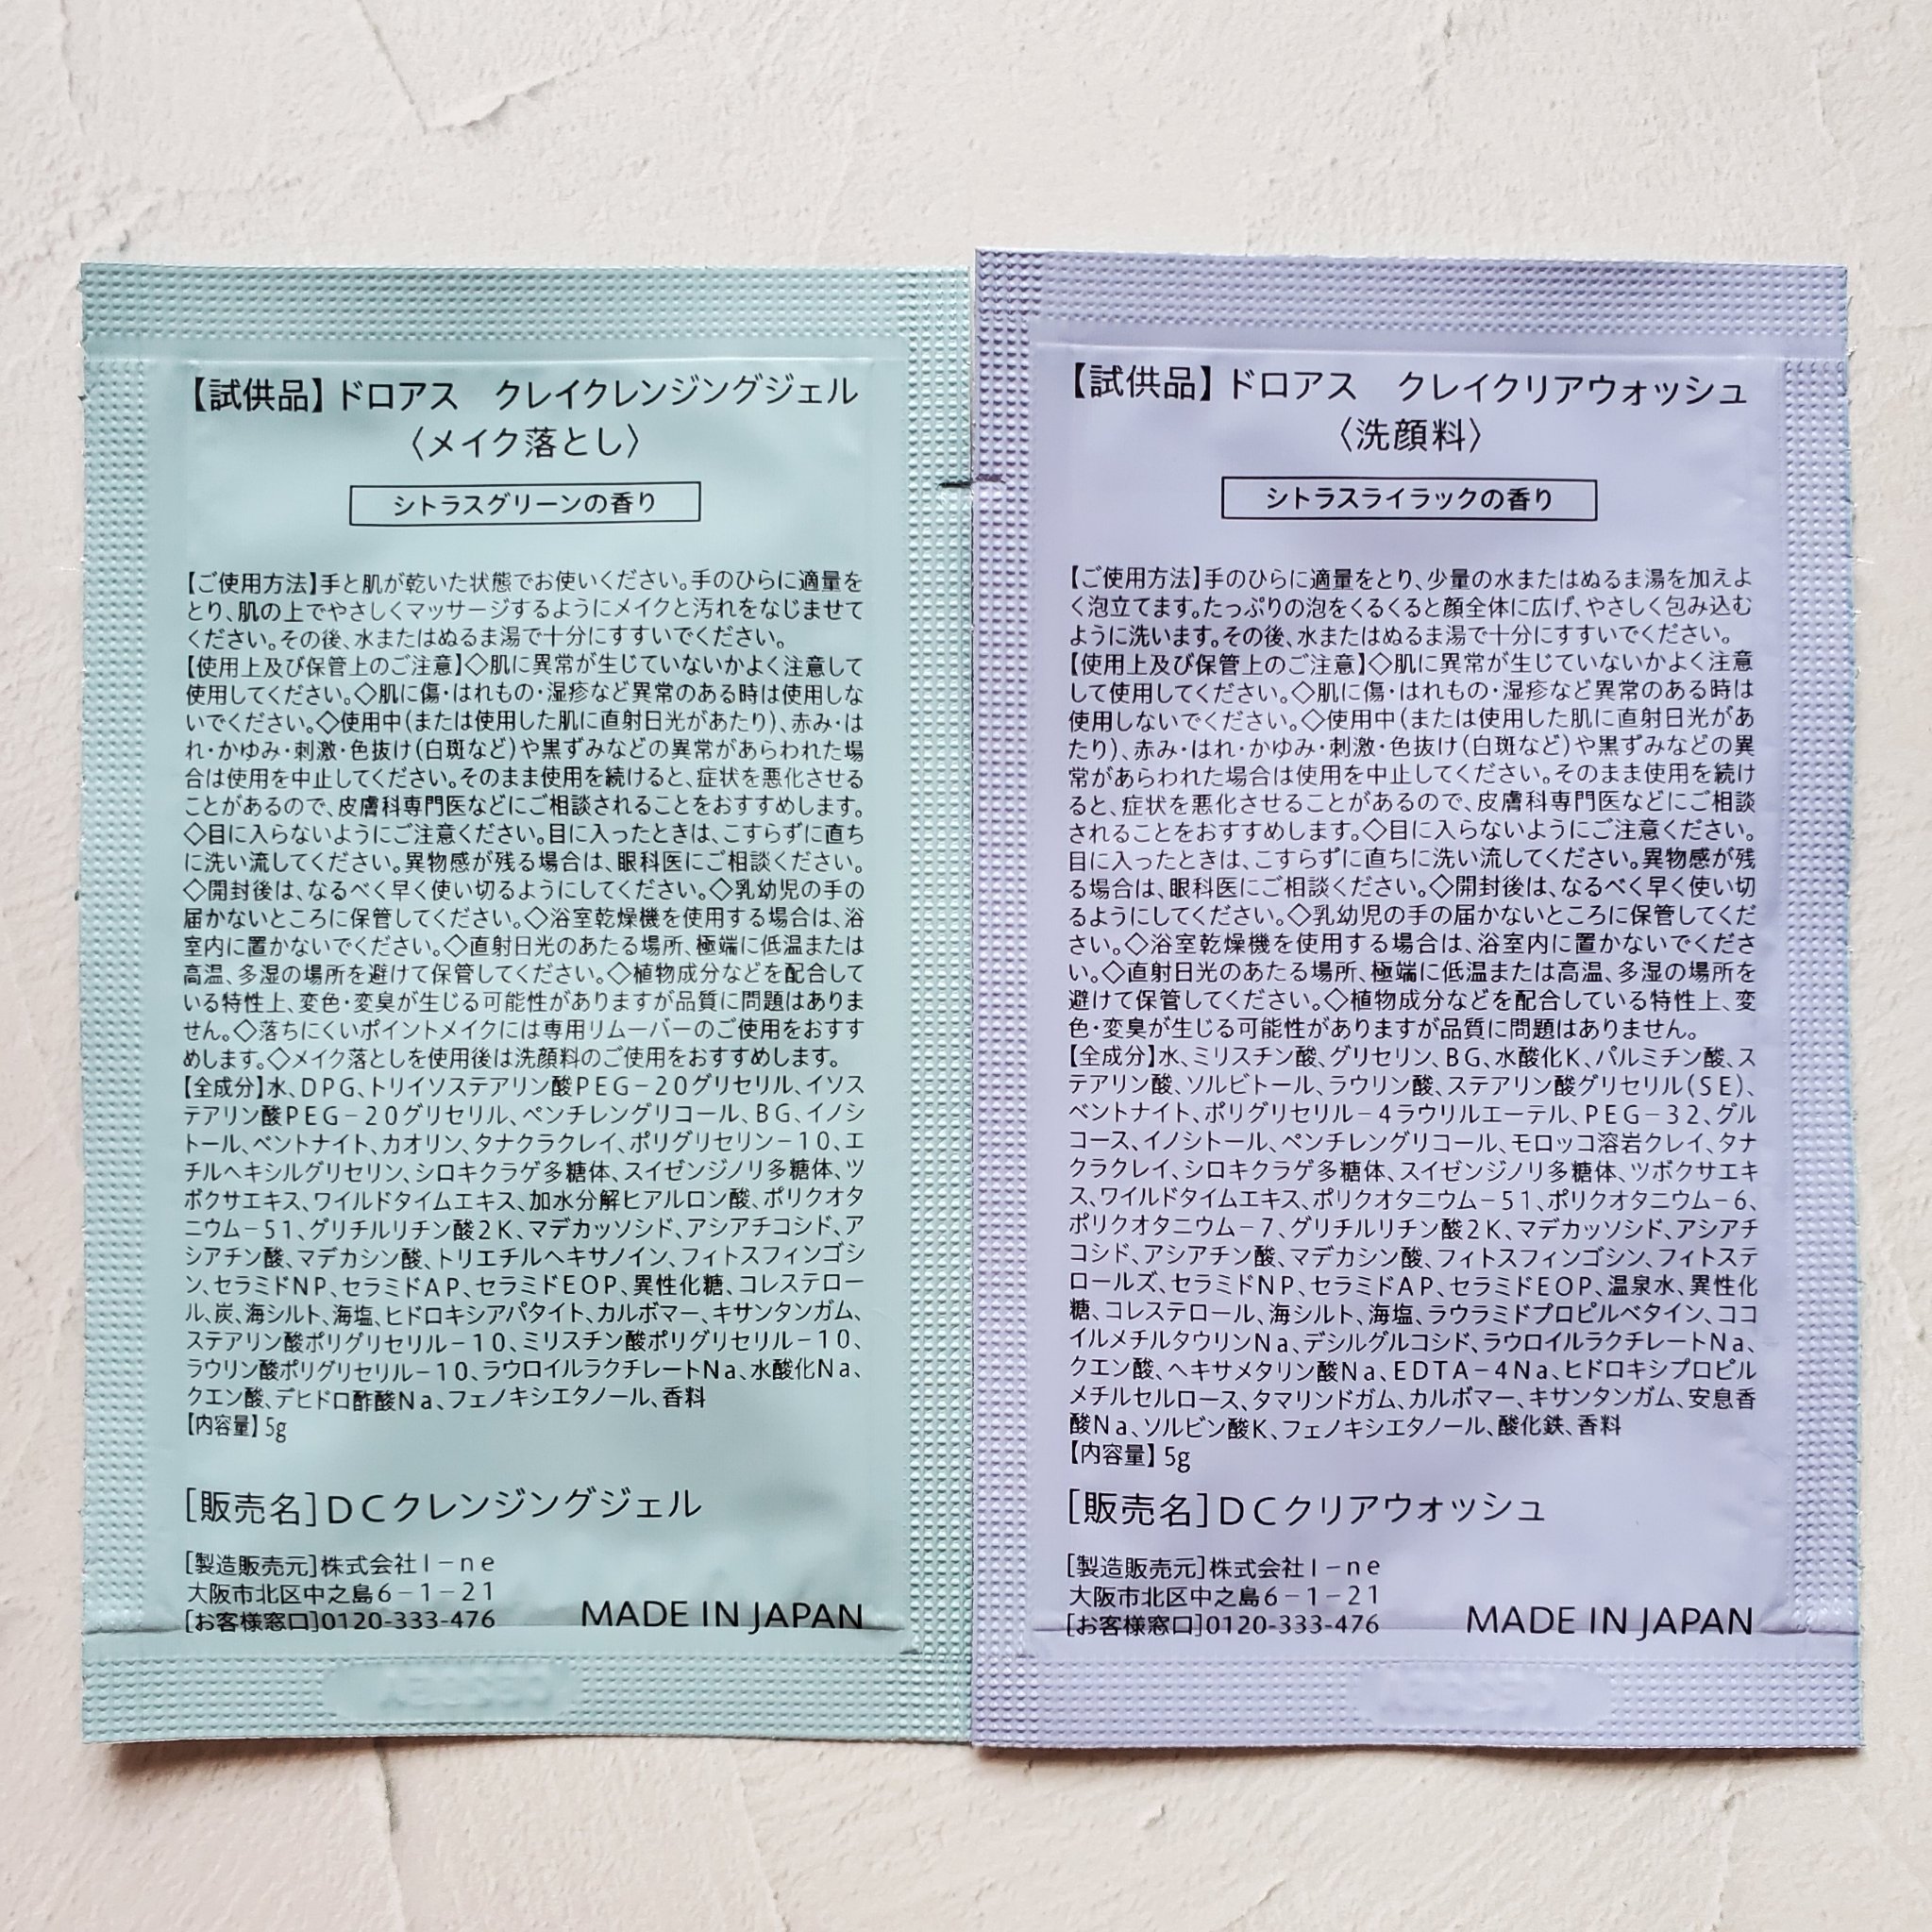 【試供品】ドロアス　クレイクレンジングジェル
〈メイク落とし〉
シトラスグリーンの香り
【ご使用方法】手と肌が乾いた状態でお使いください。手のひらに適量を
とり、肌の上でやさしくマッサージするようにメイクと汚れをなじませて
ください。その後、水またはぬるま湯で十分にすすいでください。
【使用上及び保管上のご注意】◇肌に異常が生じていないかよく注意して
使用してください。◇肌に傷・はれもの・湿疹など異常のある時は使用しな
いでください。◇使用中(または使用した肌に直射日光があたり)、赤み・は
れ・かゆみ・刺激・色抜け(白斑など)や黒ずみなどの異常があらわれた場
合は使用を中止してください。そのまま使用を続けると、症状を悪化させる
ことがあるので、皮膚科専門医などにご相談されることをおすすめします。
◇目に入らないようにご注意ください。目に入ったときは、こすらずに直ち
に洗い流してください。異物感が残る場合は、眼科医にご相談ください。
◇開封後は、なるべく早く使い切るようにしてください。◇乳幼児の手の
届かないところに保管してください。◇浴室乾燥機を使用する場合は、浴
室内に置かないでください。◇直射日光のあたる場所、極端に低温または
高温、多湿の場所を避けて保管してください。◇植物成分などを配合して
いる特性上、変色・変臭が生じる可能性がありますが品質に問題はありま
せん。◇落ちにくいポイントメイクには専用リムーバーのご使用をおすす
めします。◇メイク落としを使用後は洗顔料のご使用をおすすめします。
【全成分】水、DPG、トリイソステアリン酸PEG−20グリセリル、イソス
テアリン酸PEG−20グリセリル、ペンチレングリコール、BG、イノシ
トール、ベントナイト、カオリン、タナクラクレイ、ポリグリセリン−10、エ
チルヘキシルグリセリン、シロキクラゲ多糖体、スイゼンジノリ多糖体、ツ
ボクサエキス、ワイルドタイムエキス、加水分解ヒアルロン酸、ポリクオタ
ニウム−51、グリチルリチン酸2K、マデカッソシド、アシアチコシド、ア
シアチン酸、マデカシン酸、トリエチルヘキサノイン、フィトスフィンゴシ
ン、セラミドNP、セラミドAP、セラミドEOP、異性化糖、コレステロー
ル、炭、海シルト、海塩、ヒドロキシアパタイト、カルボマー、キサンタンガム、
ステアリン酸ポリグリセリル−10、ミリスチン酸ポリグリセリル−10、
ラウリン酸ポリグリセリル−10、ラウロイルラクチレートNa、水酸化Na、
クエン酸、デヒドロ酢酸Na、フェノキシエタノール、香料
【内容量】5g
[販売名]DCクレンジングジェル
[製造販売元]株式会社I−ne
大阪市北区中之島6−1−21
[お客様窓口]0120-333-476
MADE IN JAPAN
【試供品】ドロアス　クレイクリアウォッシュ
〈洗顔料〉
シトラスライラックの香り
【ご使用方法】手のひらに適量をとり、少量の水またはぬるま湯を加えよ
く泡立てます。たっぷりの泡をくるくると顔全体に広げ、やさしく包み込む
ように洗います。その後、水またはぬるま湯で十分にすすいでください。
【使用上及び保管上のご注意】◇肌に異常が生じていないかよく注意
して使用してください。◇肌に傷・はれもの・湿疹など異常のある時は
使用しないでください。◇使用中(または使用した肌に直射日光があ
たり)、赤み・はれ・かゆみ・刺激・色抜け(白斑など)や黒ずみなどの異
常があらわれた場合は使用を中止してください。そのまま使用を続け
ると、症状を悪化させることがあるので、皮膚科専門医などにご相談
されることをおすすめします。◇目に入らないようにご注意ください。
目に入ったときは、こすらずに直ちに洗い流してください。異物感が残
る場合は、眼科医にご相談ください。◇開封後は、なるべく早く使い切
るようにしてください。◇乳幼児の手の届かないところに保管してくだ
さい。◇浴室乾燥機を使用する場合は、浴室内に置かないでくださ
い。◇直射日光のあたる場所、極端に低温または高温、多湿の場所を
避けて保管してください。◇植物成分などを配合している特性上、変
色・変臭が生じる可能性がありますが品質に問題はありません。
【全成分】水、ミリスチン酸、グリセリン、BG、水酸化K、パルミチン酸、ス
テアリン酸、ソルビトール、ラウリン酸、ステアリン酸グリセリル(SE)、
ベントナイト、ポリグリセリル−4ラウリルエーテル、PEG−32、グル
コース、イノシトール、ペンチレングリコール、モロッコ溶岩クレイ、タナ
クラクレイ、シロキクラゲ多糖体、スイゼンジノリ多糖体、ツボクサエキ
ス、ワイルドタイムエキス、ポリクオタニウム−51、ポリクオタニウム−6、
ポリクオタニウム−7、グリチルリチン酸2K、マデカッソシド、アシアチ
コシド、アシアチン酸、マデカシン酸、フィトスフィンゴシン、フィトステ
ロールズ、セラミドNP、セラミドAP、セラミドEOP、温泉水、異性化
糖、コレステロール、海シルト、海塩、ラウラミドプロピルベタイン、ココ
イルメチルタウリンNa、デシルグルコシド、ラウロイルラクチレートNa、
クエン酸、ヘキサメタリン酸Na、EDTA−4Na、ヒドロキシプロピル
メチルセルロース、タマリンドガム、カルボマー、キサンタンガム、安息香
酸Na、ソルビン酸K、フェノキシエタノール、酸化鉄、香料
【内容量】5g
[販売名]DCクリアウォッシュ
[製造販売元]株式会社I−ne
大阪市北区中之島6−1−21
[お客様窓口]0120-333-476
MADE IN JAPAN